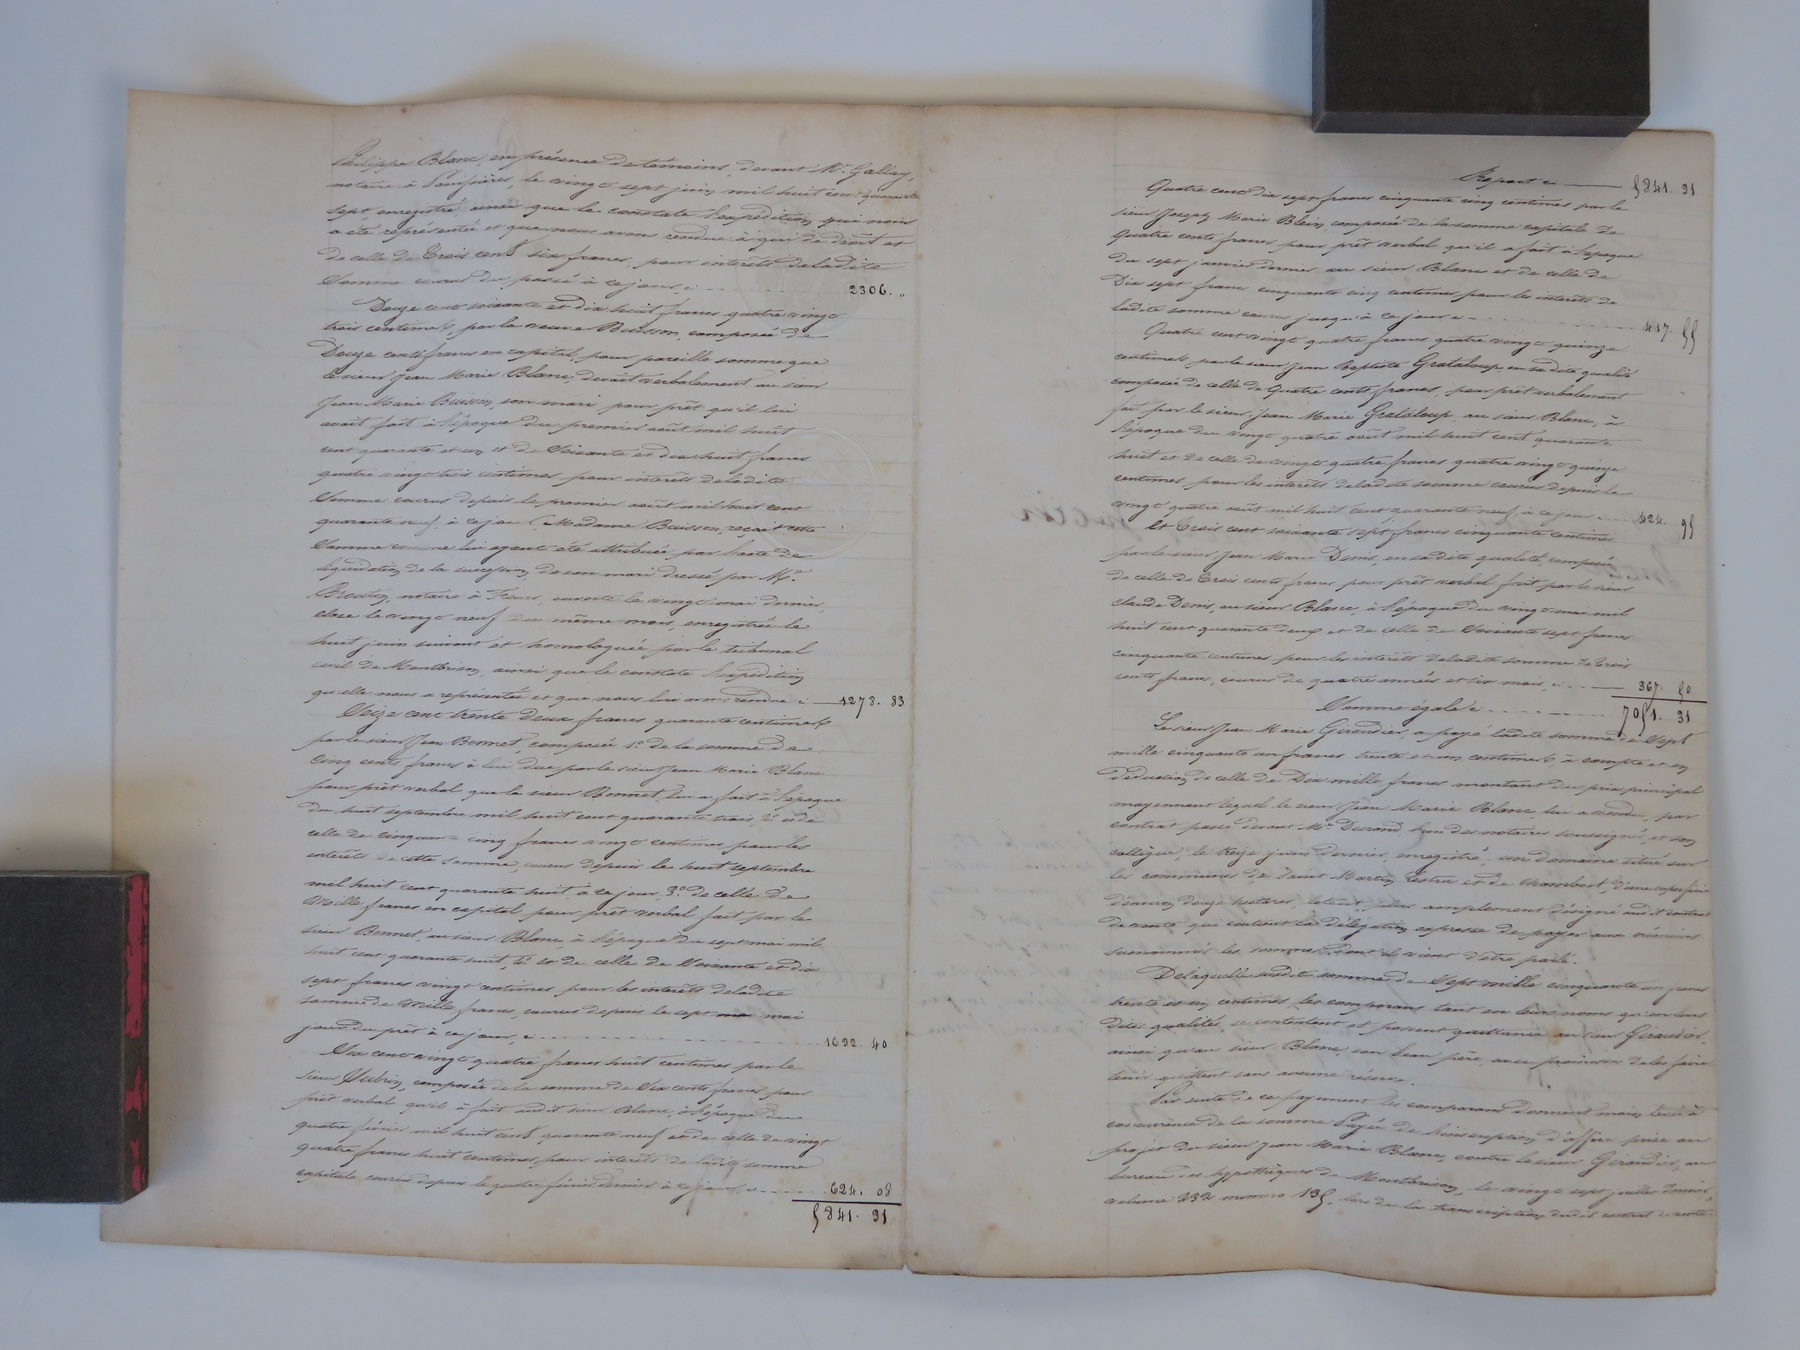 Philippe Blanc, en présence de témoins, devant Me Gallay,
notaire à Panissières, le vingt sept juin mil huit cent quarante
sept, enregistré, ainsi que le constate l'expédition qui nous
a été représentée et que nous avons rendue à qui de droit et
de celle de Trois cent six francs, pour intérêts de ladite
Somme courus du passé à ce jour, ci 2306. "
Douze cent soixante et dix huit francs quatre vingt
trois centimes, par la veuve Buisson, composée de
Douze cents francs en capital, pour pareille somme que
le sieur Jean Marie Blanc, devait verbalement au sieur
Jean Marie Buisson, son mari pour prêt qu'il lui
avait fait à l'époque du premier août mil huit
cent quarante et un et de Soixante et dix huit francs
quatre vingt trois centimes, pour intérêts de ladite
Somme courus depuis le premier août mil huit cent
quarante neuf à ce jour, Madame Buisson, reçoit cette
Somme comme lui ayant été attribuée par l'acte de
liquidation de la succession de son mari dressé par Me
notaire à Feurs, ouverte le vingt mai dernier,
close le vingt neuf du même mois, enregistrée le
huit juin suivant et homologuée par le tribunal
civil de Montbrison, ainsi que le constate l'expédition
qu'elle nous a représentée et que nous lui avons rendue ci 1278. 83
Seize cent trente deux francs quarante centimes
par le sieur Jean Bonnet, composée 1° de la somme de
Cinq cents francs à lui due par le sieur Jean Marie Blanc
pour prêt verbal que le sieur Bonnet, lui a fait à l'époque
du huit septembre mil huit cent quarante trois, 2° et de
celle de cinquante cinq francs vingt centimes pour les
intérêts de cette somme, courus depuis le huit septembre
mil huit cent quarante huit, à ce jour, 3° de celle de
Mille francs en capital pour prêt verbal fait, par le
sieur Bonnet, au sieur Blanc, à l'époque du sept mai mil
huit cent quarante huit, 4° et de celle de Soixante et dix
sept francs vingt centimes, pour les intérêts de ladite
somme de Mille francs, courus depuis le sept mai
jour du prêt à ce jour, ci 1632. 40
Six cent vingt quatre francs huit centimes par le
sieur composée de la somme de Six cents francs pour
prêt verbal qu'il a fait audit sieur Blanc, à l'époque du
quatre février mil huit cent quarante neuf et de celle de vingt
quatre francs huit centimes, pour intérêts de ladite somme
capitale courus depuis le quatre février dernier à ce jour, ci 624. 08
5841. 31
Report ci 5841. 31
Quatre cent dix sept francs cinquante cinq centimes par le
sieur Joseph Marie Blein, composée de la somme capitale de
Quatre cents francs pour prêt verbal qu'il a fait à l'époque
du sept janvier dernier au sieur Blanc et de celle de
Dix sept francs cinquante cinq centimes, pour les intérêts de
ladite somme courus jusqu'à ce jour ci 417. 55
Quatre cent vingt quatre francs quatre vingt quinze
centimes par le sieur Jean Baptiste Grataloup en sa dite qualité
composée de celle de Quatre cents francs, pour prêt verbalement
fait par le sieur Jean Marie Grataloup, au sieur Blanc, à
l'époque du vingt quatre août mil huit cent quarante
huit et de celle de vingt quatre francs quatre vingt quinze
centimes, pour les intérêts de ladite somme courus depuis le
vingt quatre août mil huit cent quarante neuf à ce jour 424. 95
Et Trois cent soixante sept francs cinquante centimes
par le sieur Jean Marie Denis, en sa dite qualité, composée
de celle de Trois cents francs pour prêt verbal fait par le sieur
Claude Denis, au sieur Blanc, à l'époque du vingt mai mil
huit cent quarante deux et de celle de Soixante sept francs
cinquante centimes pour les intérêts de ladite somme de Trois
cents francs, courus de quatre années et six mois, ci 367. 50
Somme égale ci 7051. 31
Le sieur Jean Marie Giraudier, a payé ladite somme de Sept
mille cinquante un francs trente et un centimes à compte et en
déduction de celle de Dix mille francs montant du prix principal
moyennant lequel le sieur Jean Marie Blanc, lui a vendu, par
contrat passé devant Me Durand, l'un des notaires soussignés, et son
collègue, le treize juin dernier, enregistré, un domaine situé sur
les communes de Saint Martin Lestra et de Chambost, d'une superficie
d'environ douze hectares, le tout, plus amplement désigné audit contrat
de vente qui contient la délégation expresse de payer aux créanciers
susnommés les sommes dont il vient d'être parlé.
De laquelle susdite somme de Sept mille cinquante un francs
trente et un centimes, les comparans tant en leurs noms qu'en leurs
dites qualités, se contentent et passent quittance au sieur Giraudier
ainsi qu'au sieur Blanc, son beau père, avec promesse de les faire
tenir quittent sans aucune réserve.
Par suite de ce payement les comparans donnent main levée à
concurrence de la somme Payée de l'inscription d'office prise au
projet du sieur Jean Marie Blanc, contre le sieur Giraudier, au
bureau des hypothèques de Montbrison, le vingt sept juillet dernier,
volume 232 numéro 135, lors de la transcription dudit contrat de vente